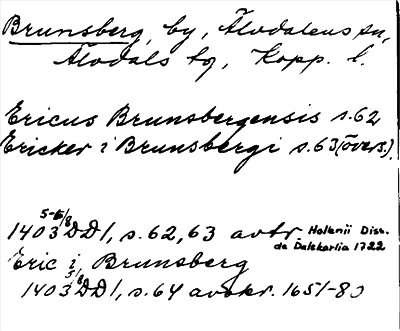 Brunsberg, by, Älvdalens sn,
Älvdals tg, Kopp. l.
Ericus Brunsbergensis s.62
Ericker i Brunsbergi s.63 (övers.).
1403 5-6/8 DD1, s.62,63 avtr. Holenii Diss. de Dalekarlia 1722
Eric i Brunsberg
1403 5/8 DD1, s.64 avskr. 1651-80